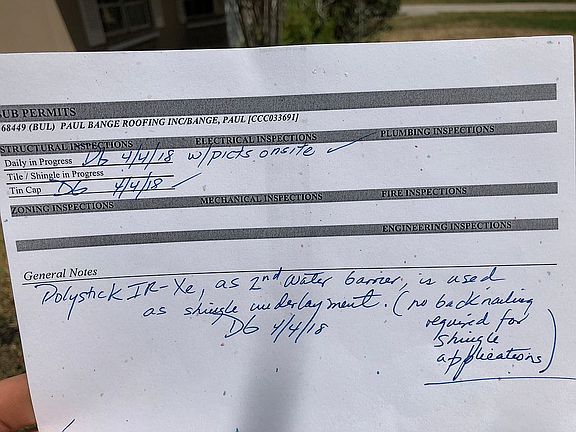 SUB PERMITS
68449 (BUL) PAUL BANGE ROOFING INC/BANGE, PAUL [CCC033691]
STRUCTURAL INSPECTIONS ELECTRICAL INSPECTIONS PLUMBING INSPECTIONS
Daily in Progress DG 4/4/18 w/picts onsite ✓
Tile / Shingle in Progress
Tin Cap DG 4/4/18 ✓
ZONING INSPECTIONS MECHANICAL INSPECTIONS FIRE INSPECTIONS
ENGINEERING INSPECTIONS
General Notes
Polystick IR-Xe, as 2nd water barrier, is used
as shingle underlayment. (no backnailing
required for
DG 4/4/18
shingle
applications)